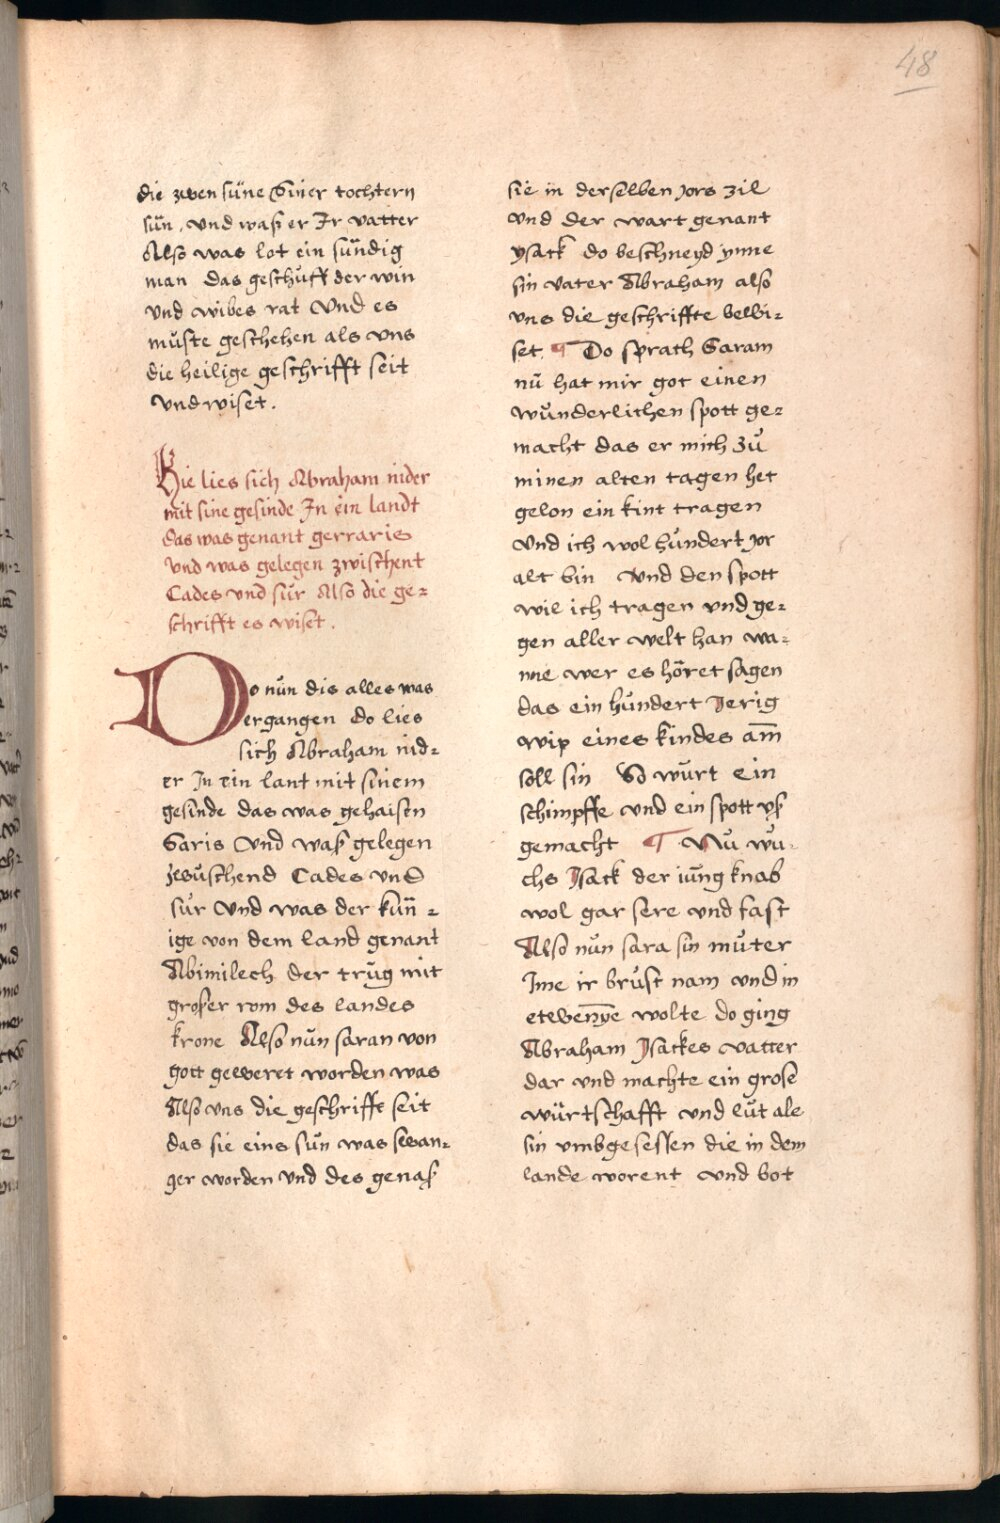 48
die zwen süne Siner tochtern
sün, und waß er Jr vatter
Also was lot ein sündig
man das geschůff der win
und wibes rat Und es
můste geschehen als uns
die heilige geschrifft seit
und wiset.
Hie lies sich Abraham nider
mit sine gesinde Jn ein landt
das was genant gerraris
Und was gelegen zwischent
Cades und sůr Also die ge=
schrifft es wiset.
Do nůn dis alles was
ergangen do lies
sich Abraham nid=
er Jn ein lant mit sinem
gesinde das was gehaisen
Saris Und waß gelegen
zewůschend Cades und
sůr Und was der kün̄=
ige von dem land genant
Abimilech der trůg mit
groser rom des landes
krone Also nůn saran von
gott geweret worden was
Also uns die geschrifft seit
das sie eins sůn was swan=
ger worden und des genaß
sie in derselben jors zil
und der wart genant
ysack do beschneyd ynne
sin vater Abraham also
uns die geschriffte bewi=
set. ¶ Do sprach Saram
nů hat mir got einen
wůnderlichen spott ge=
macht das er mich zů
minen alten tagen het
gelon ein kint tragen
Und ich wol hůndert jor
alt bin Und den spott
wil ich tragen und ge=
gen aller welt han wa=
nne wer es höret sagen
das ein hůndert Jerig
wip eines kindes am̄
soll sin So wůrt ein
schimpffe und ein spott uß
gemacht ¶ Nů wů
chs Jsack der iůng knab
wol gar sere und fast
Also nůn sara sin můter
Jme ir brůst nam und in
etwen̄ye wolte do ging
Abraham Jsackes vatter
dar und machte ein grose
würtschafft und lůt ale
sin umbgesessen die in dem
lande worent und bot